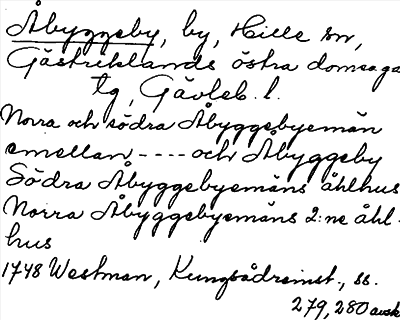 Åbyggeby, by, Hille sn,
Gästriklands östra domsaga
tg, Gävleb. l.
Norra och södra Åbyggebyemän
emellan ---- och Åbyggeby
Södra Åbyggebyemäns åhlhus
Norra Åbyggebyemäns 2:ne åhl-
hus
1748 Westman, Kungsådreinst., ss.
279, 280 avskr